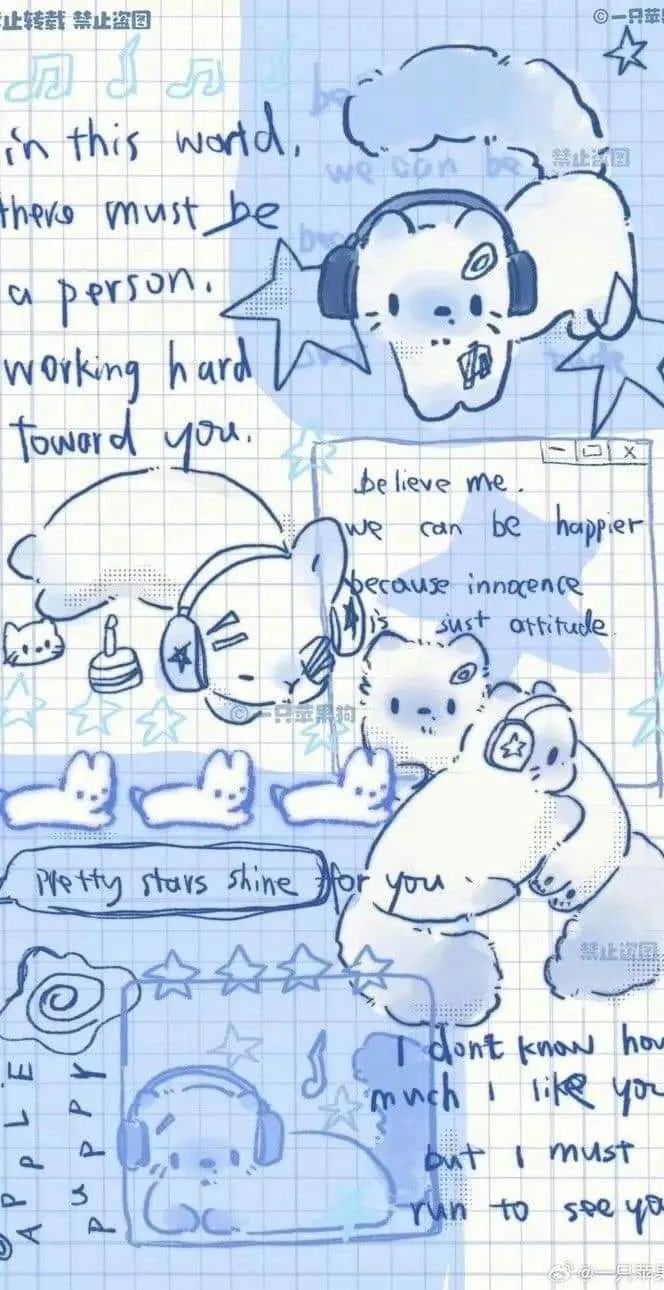 禁止转载 禁止盗图
©一只苹果
in this world.
there must be
a person.
working hard
toward you.
be
we can be
禁止盗图
believe me.
we can be happier
because innocence
is just attitude.
©一只苹果狗
pretty stars shine for you.
禁止盗图
APPLE
PUPPY
I dont know how
much i like you
but i must
run to see you
@一只苹果